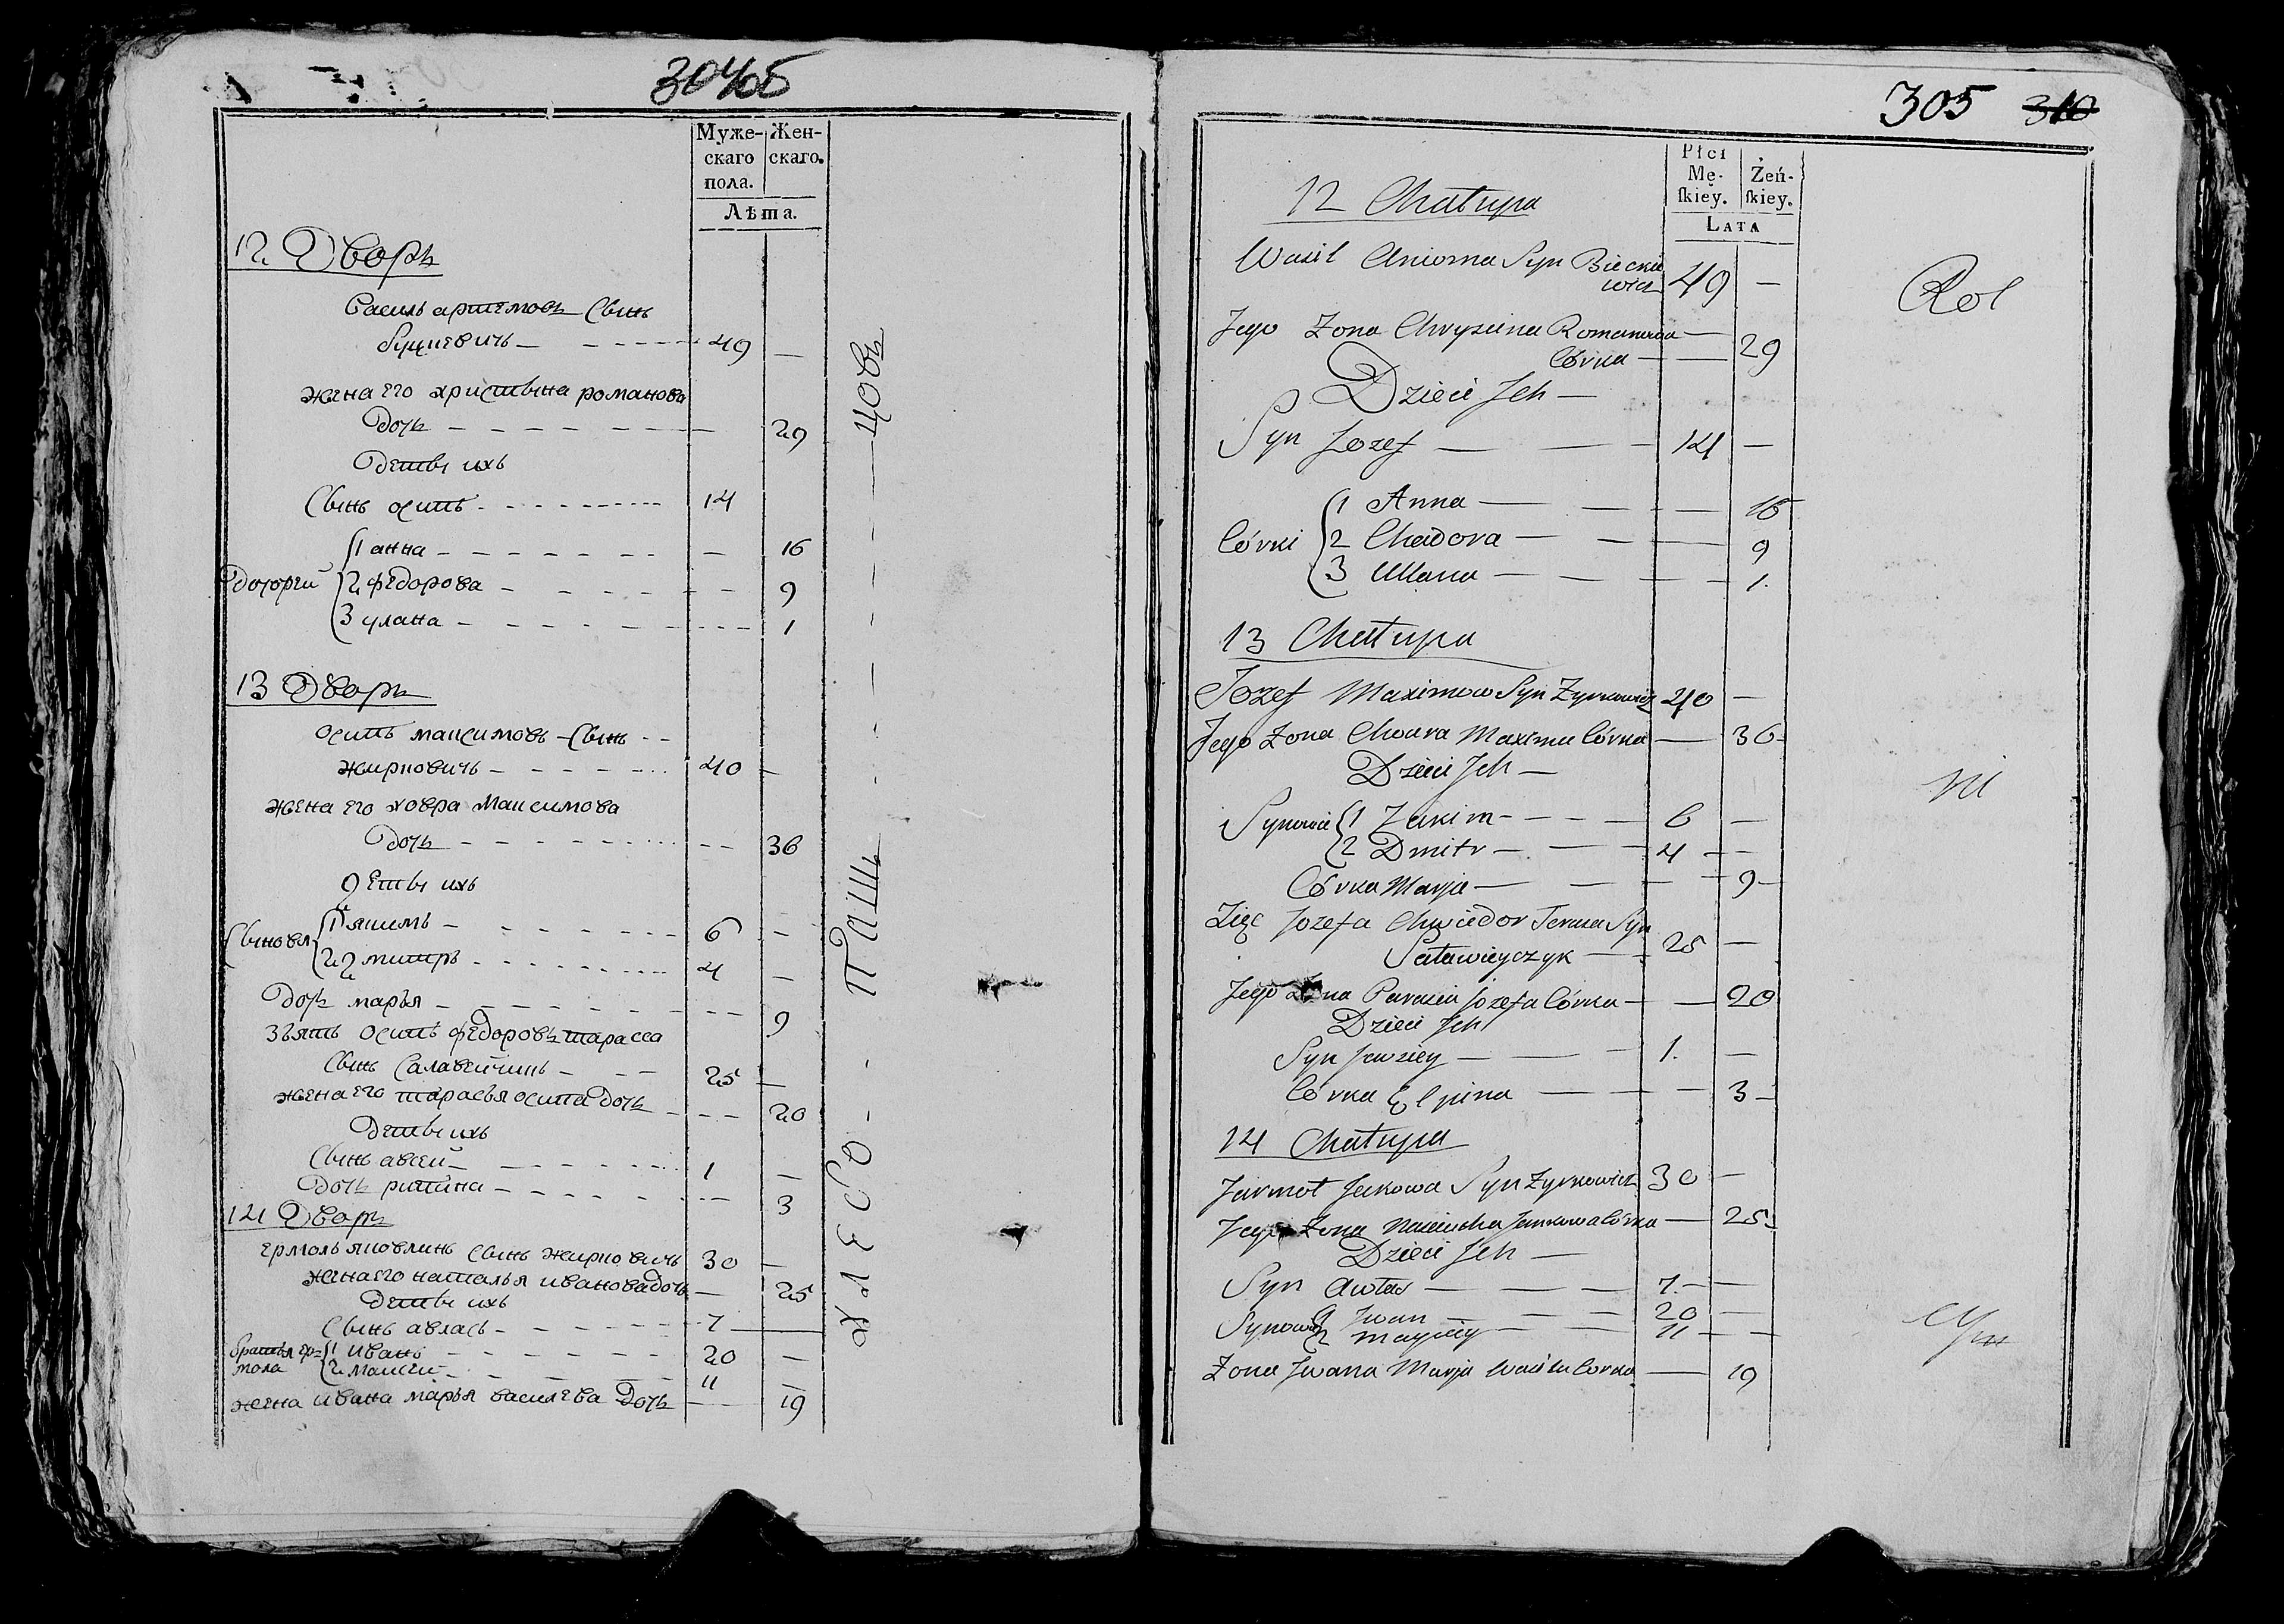 304об
Муже- Жен-
скаго скаго.
пола.
Лѣта.
12 Дворъ
Василь артемовъ Сынъ
49 —
жена его христына романова
Дочь 29
Деты ихъ
Сынъ осипъ 14
1 анна — 16
дочорей 2 федорова — 9
3 улана 1
13 Дворъ
осипъ максимовъ Сынъ
жирковичь 40 —
жена его ховра максимова
Дочь 36
Деты ихъ
Сыновя 1 якимъ 6 —
2 Дмитръ 4 —
Дочь марья 9
зять осипъ федоровъ тарасса
Сынъ Салавейчикъ 25 —
жена его парасья осипа Дочь 20
Деты ихъ
Сынъ авсей 1 —
Дочь 3
14 Дворъ
ермоль яковлинъ Сынъ жирковичъ 30 —
жена его наталья иванова дочь — 25
Деты ихъ
Сынъ авласъ 7
братья ер=
мола
1 иванъ 20 —
2 11 —
жена ивана марья василева Дочь 19
ХЛЕБО - ПАШЬ — ЦОВЪ
305 310
Płci
Mę- Żeń-
ſkiey. ſkiey.
LATA
12 Chałupa
Wasil Syn Bieckie
wicz 49 —
Jego Zona Chrysina Romanowa
Córka — 29
Dzieci Jch —
Syn Jozef — 14 —
1 Anna — 16
Córki 2 Chadora — 9
3 Ullana — 1.
13 Chałupa
Jozef Maximow Syn Zyrkowicz 40 —
Jego Zona Chowra Maxima Córka — 36
Dzieci Jch —
Synowie 1 Jakim 6 —
2 Dmitr — 4 —
Córka Marja — 9
Zięć Jozefa Chwiedor Tarasa Syn
Saławieyczyk — 25 —
Jego Zona Parasia Jozefa Córka — 20
Dzieci Jch
Syn Jawsiey — 1. —
Córka — 3
14 Chałupa
Jarmoł Jakowa Syn Zyrkowicz 30 —
Jego Zona Jankowa Córka — 25
Dzieci Jch —
Syn Awłas — 7 —
Synowie 1 Jwan — 20 —
2 11 —
Zona Jwana Marja Wasila Corka — 19
Rol
ni